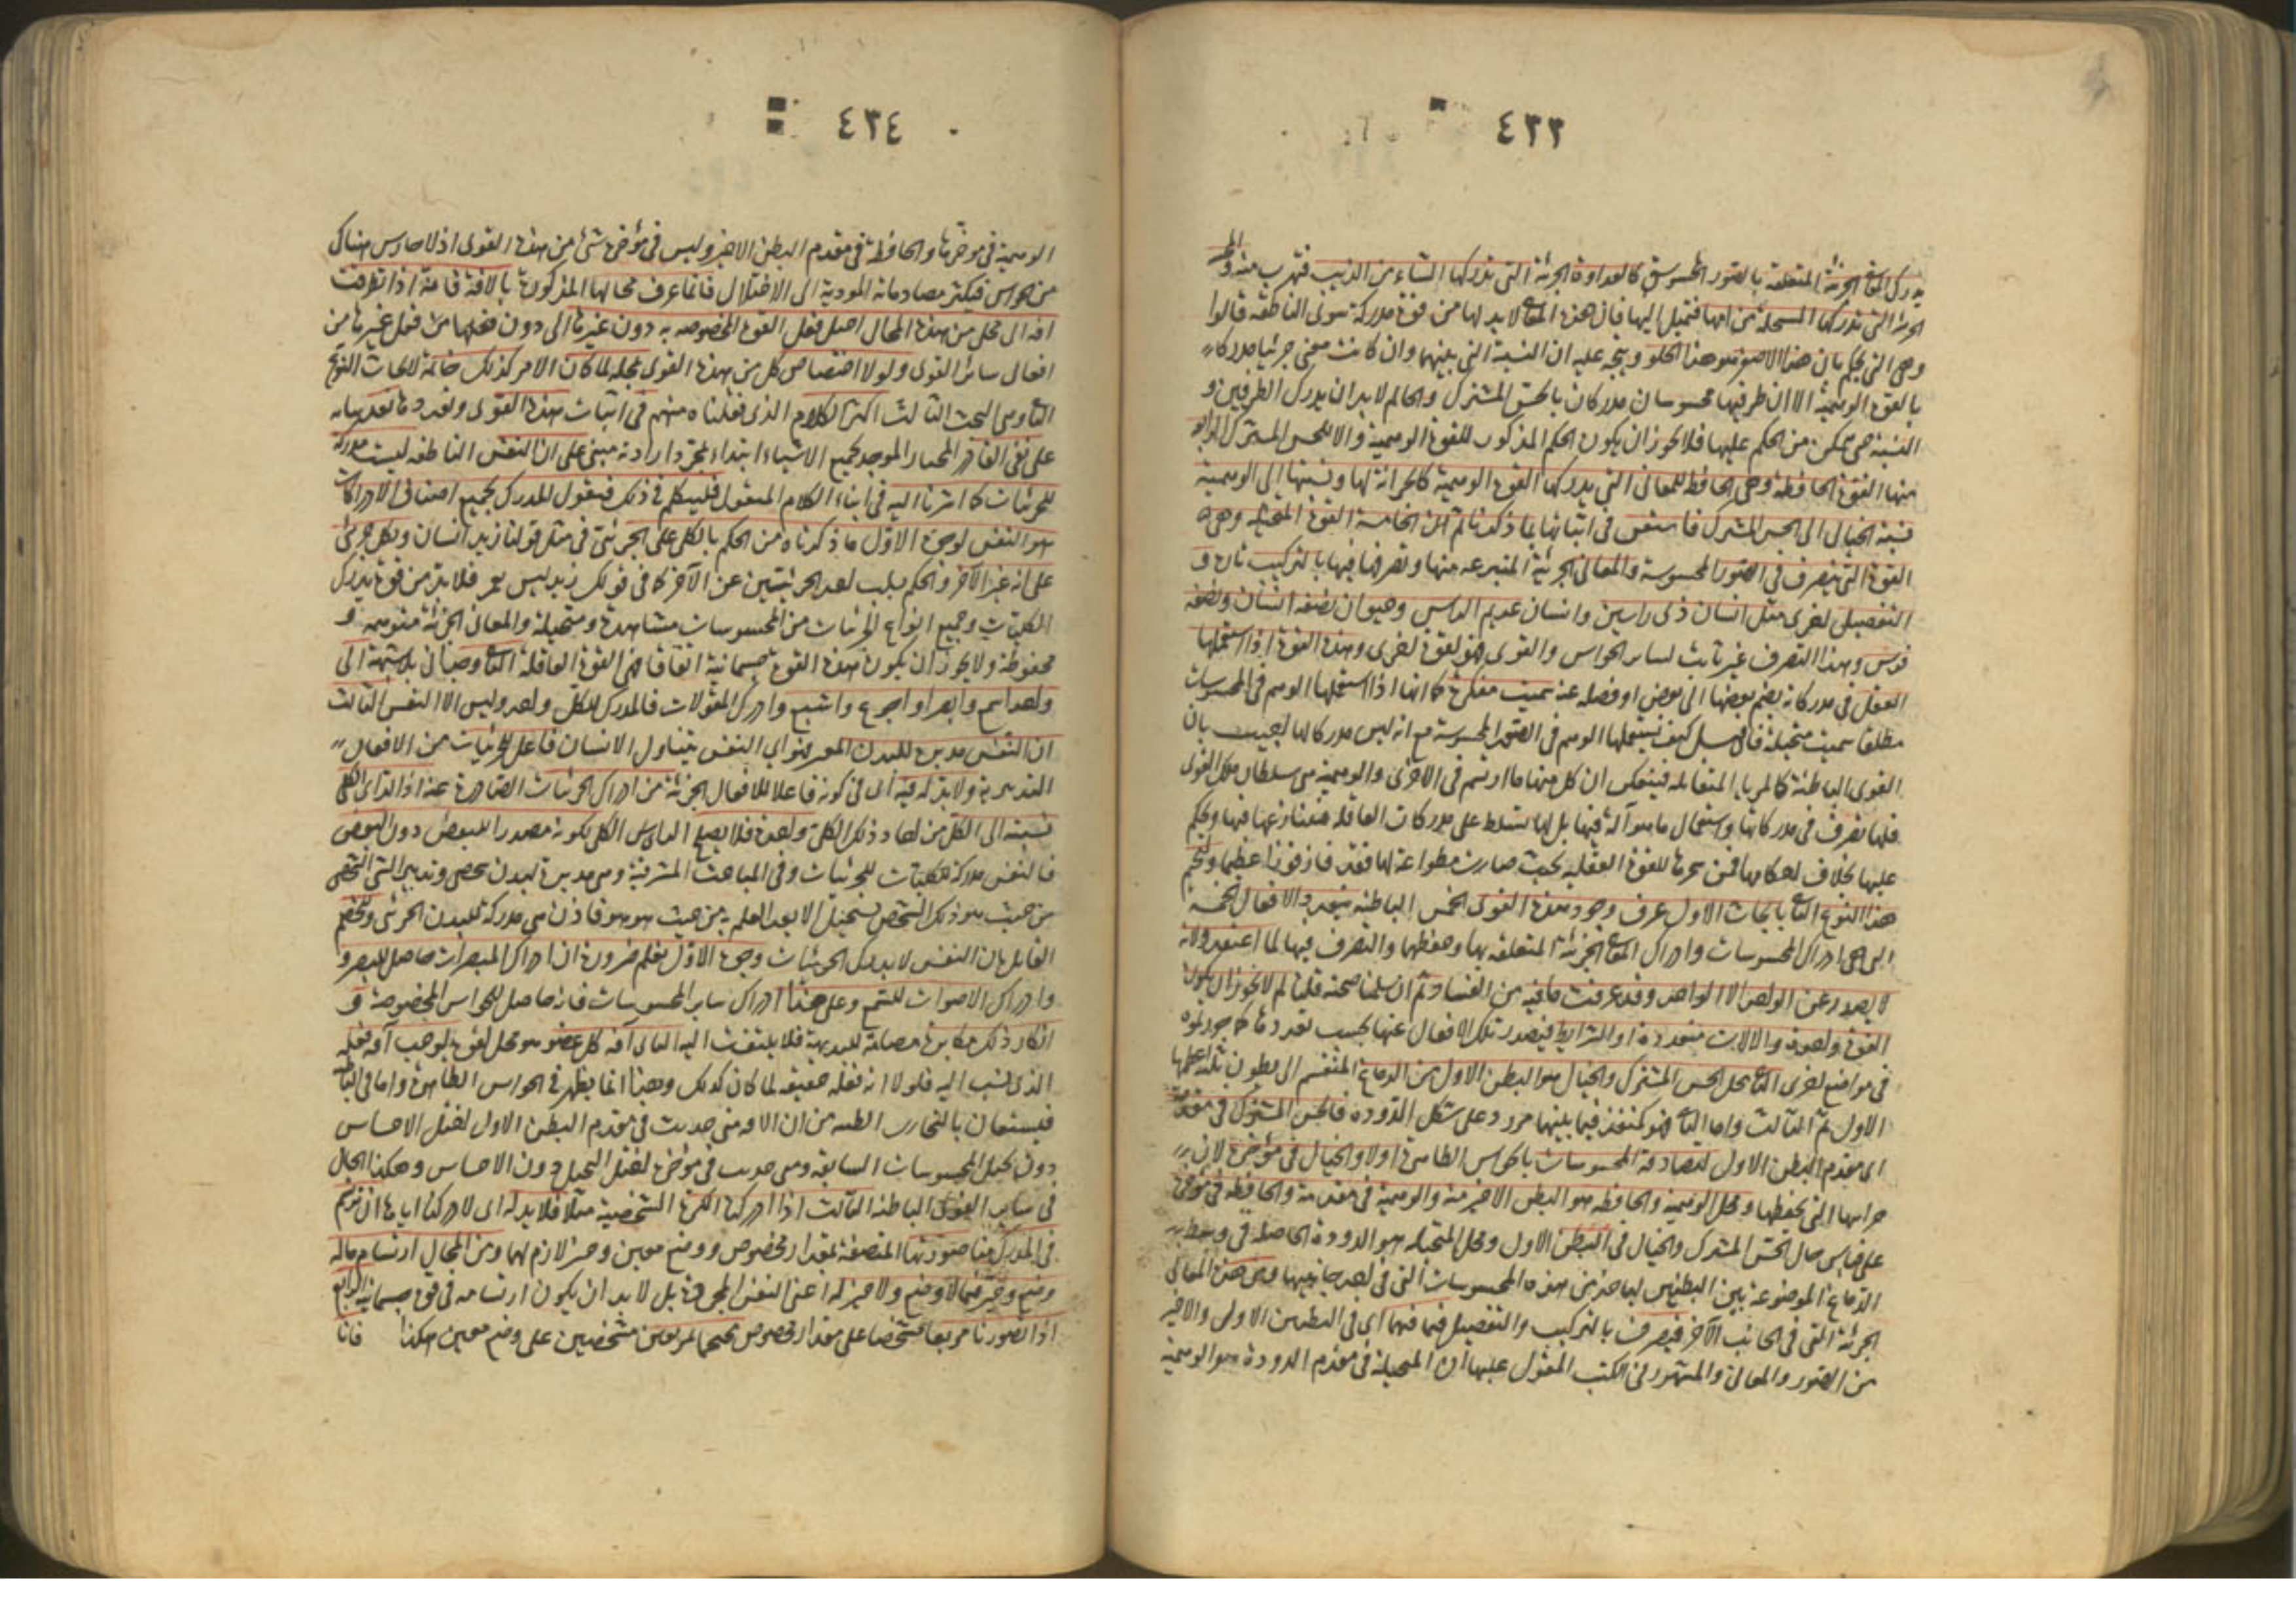 ٤٣٣
يدرك المعانى الجزئية المتعلقة بالصور المحسوسة كالعداوة الجزئية التى تدركها الشاة من الذئب فتهرب منه والمحبة
الجزئية التى تدركها السخلة من امها فتميل اليها فان هذه المعانى لابد لها من قوة مدركة سوى الناطقة قالوا
وهى التى يحكم بان هذا الاصفر هو هذا الحلو ويتجه عليه ان النسبة التى بينهما وان كانت معنى جزئيا مدركا
بالقوة الوهمية الا ان طرفيها محسوسان مدركان بالحس المشترك والحاكم لابد ان يدرك الطرفين و
النسبة حتى يتمكن من الحكم عليها فلا يجوز ان يكون الحكم المذكور للقوة الوهمية والا للحس المشترك الرابعة
منها القوة الحافظة وهى الحافظ للمعانى التى يدركها القوة الوهمية كالخزانة لها ونسبتها الى الوهمية
نسبة الخيال الى الحس المشترك فاستغن فى اثباتها بما ذكرنا ثم الخامسة القوة المتخيلة وهى
القوة التى يتصرف فى الصور المحسوسة والمعانى الجزئية المنتزعة منها وتصرفها فيها بالتركيب تارة و
التفصيل اخرى مثل انسان ذى راسين وانسان عديم الراس وحيوان نصفه انسان ونصفه
فرس وهذا التصرف غير ثابت لسائر الحواس والقوى فهو لقوة اخرى وهذه القوة اذا استعملها
العقل فى مدركاته بضم بعضها الى بعض او فصله عنه سميت مفكرة كما انها اذا استعملها الوهم فى المحسوسات
مطلقا سميت متخيلة فان قيل كيف يستعملها الوهم فى الصور المحسوسة مع انه ليس مدركا لها اجيب بان
القوى الباطنة كالمرايا المتقابلة فينعكس الى كل منها ما ارتسم فى الاخرى والوهمية هى سلطان تلك القوى
فلها تصرف فى مدركاتها واستعمال ما هو آلة فيها بل لها تسلط على مدركات العاقلة فتنازعها فيها ويحكم
عليها بخلاف احكامها فمن سخرها للقوة العقلية بحيث صارت مطواعة لها فقد فاز فوزا عظيما ولنختم
هذا النوع الثانى بابحاث الاول عرف وجود هذه القوى الخمس الباطنة بتعدد الافعال الخمسة
التى هى ادراك المحسوسات وادراك المعانى الجزئية المتعلقة بها وحفظهما والتصرف فيها لما اعتقدوا انه
لا يصدر عن الواحد الا الواحد وقد عرفت ما فيه من الفساد ثم ان سلمنا صحته قلنا لم لا يجوز ان يكون
القوة واحدة والالات متعددة او الشرايط فيصدر تلك الافعال عنها بحسب تعددها كما جوزتموه
فى مواضع اخرى الثانى محل الحس المشترك والخيال هو البطن الاول من الدماغ المنقسم الى بطون ثلثة اعظمها
الاول ثم الثالث واما الثانى فهو كمنفذ فيما بينهما مزرد على شكل الدودة فالحس المشترك فى مقدمه
اى مقدم البطن الاول ليصادفه المحسوسات بالحواس الظاهرة اولا والخيال فى مؤخره لانه
خزانتها التى يحفظها ومحل الوهمية والحافظة هو البطن الاخير منه والوهمية فى مقدمه والحافظة فى مؤخره
على قياس حال الحس المشترك والخيال فى البطن الاول ومحل المتخيلة هو الدودة الحاصلة فى وسط
الدماغ الموضوعة بين البطنين لياخذ من هذه المحسوسات التى فى احد جانبيها ومن هذه المعانى
الجزئية التى فى الجانب الآخر فيتصرف بالتركيب والتفصيل فيما فيهما اى فى البطنين الاول والاخير
من الصور والمعانى والمشهور فى الكتب المعول عليها ان المتخيلة فى مقدم الدودة والوهمية
٤٣٤
الوهمية فى مؤخرها والحافظة فى مقدم البطن الاخير وليس فى مؤخره شئ من هذه القوى اذ لا حارس هناك
من الحواس فيكثر مصادماته المودية الى الاختلال فانما عرف محالها المذكورة بالافة فانه اذا تطرقت
افة الى محل من هذه المحال اختل فعل القوة المخصوصة به دون غيرها الى دون فعلها من فعل غيرها من
افعال سائر القوى ولولا اختصاص كل من هذه القوى بمحله لما كان الامر كذلك خاتمة لابحاث النوع
الثانى وهى البحث الثالث اكثر الكلام الذى نقلناه منهم فى اثبات هذه القوى وتعددها بعد بنائه
على نفى القادر المختار الموجد لجميع الاشياء ابتداء بمجرد ارادته مبنى على ان النفس الناطقة ليست مدركة
للجزئيات كما اشرنا اليه فى اثناء الكلام المنقول فليتكلم فى ذلك فنقول المدرك لجميع اصناف الادراكات
هو النفس لوجوه الاول ما ذكرناه من الحكم بالكلى على الجزئى فى مثل قولنا زيد انسان وبكل جزئى
على انه غير الآخر والحكم بسلب احد الجزئيتين عن الآخر كما فى قولك زيد ليس بعمرو فلابد من قوة يدرك
الكليات وجميع انواع الجزئيات من المحسوسات مشاهدة ومتخيلة والمعانى الجزئية متوهمة و
محفوظة ولا يجوز ان يكون هذه القوة جسمانية اتفاقا فهى القوة العاقلة الثانى وجدانى بلا شبهة انى
واحد اسمع وابصر واجوع واشبع وادرك المعقولات فالمدرك للكل واحد وليس الا النفس الثالث
ان النفس مدبرة للبدن المعين فهو اى النفس يتناول الانسان فاعل للجزئيات من الافعال
التدبيرية ولابد له فيه اى فى كونه فاعلا للافعال الجزئية من ادراك الجزئيات الصادرة عنه اذ الراى الكلى
نسبته الى الكل من احاد ذلك الكلى واحدة فلا يصلح الراى الكلى لكونه مصدرا للبعض دون البعض
فالنفس مدركة للكليات للجزئيات وفى المباحث المشرقية وهى مدبرة لبدن شخصى وتدبير الشئ الشخصى
من حيث هو ذلك الشخص يستحيل الا بعد العلم به من حيث هو هو فاذن هى مدركة للبدن الجزئى وللخصم
القائل بان النفس لا يدرك الجزئيات وجوه الاول نعلم ضرورة ان ادراك المبصرات حاصل للبصر و
وادراك الاصوات للسمع وعلى هذا ادراك ساير المحسوسات فانه حاصل للحواس المخصوصة و
انكار ذلك مكابرة مصادمة للبديهة فلا يلتفت اليه الثانى آفة كل عضو هو محل لقوة يوجب آفة فعله
الذى نسب اليه فلولا انه فعله حقيقة لما كان كذلك وهذا انما يظهر فى الحواس الظاهرة واما فى الباطنة
فيستعان بالتجارب الطبية من ان الافة متى حدثت فى مقدم البطن الاول اختل الاحساس
دون تخيل المحسوسات السابقة ومتى حدثت فى مؤخره اختل التخيل دون الاحساس وهكذا الحال
فى ساير القوى الباطنة الثالث اذا ادركنا الكرة الشخصية مثلا فلابد له اى لادراكنا اياها ان يرتسم
فى المدرك منا صورتها المتصفة بمقدار مخصوص ووضع معين وحيز لازم لهما ومن المحال ارتسام ماله
وضع وحيز فيما لا وضع ولا حيز له اعنى النفس المجردة بل لابد ان يكون ارتسامه فى قوة جسمانية الرابع
اذا تصورنا مربعا مشخصا على مقدار مخصوص مجنحا بمربعين مشخصين على وضع معين هكذا فانا